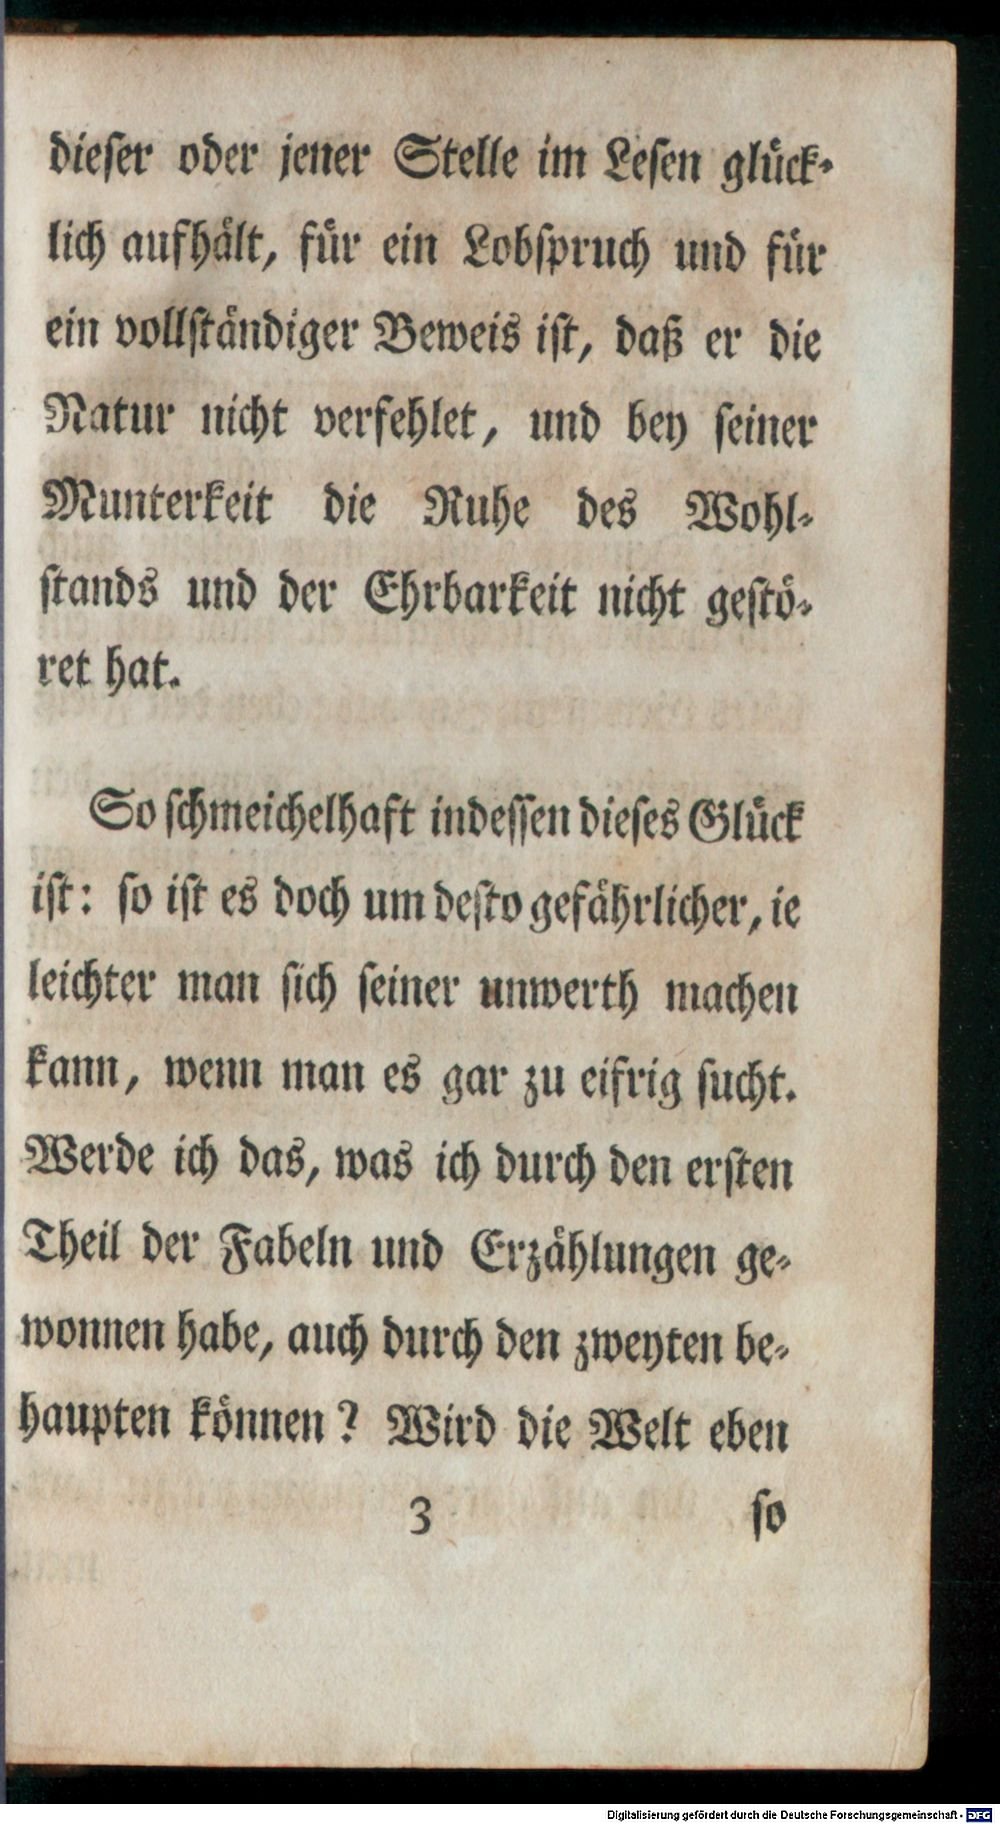 dieser oder jener Stelle im Lesen glück-
lich aufhält, für ein Lobspruch und für
ein vollständiger Beweis ist, daß er die
Natur nicht verfehlet, und bey seiner
Munterkeit die Ruhe des Wohl-
stands und der Ehrbarkeit nicht gestö-
ret hat.
So schmeichelhaft indessen dieses Glück
ist: so ist es doch um desto gefährlicher, ie
leichter man sich seiner unwerth machen
kann, wenn man es gar zu eifrig sucht.
Werde ich das, was ich durch den ersten
Theil der Fabeln und Erzählungen ge-
wonnen habe, auch durch den zweyten be-
haupten können? Wird die Welt eben
3 so
Digitalisierung gefördert durch die Deutsche Forschungsgemeinschaft - DFG